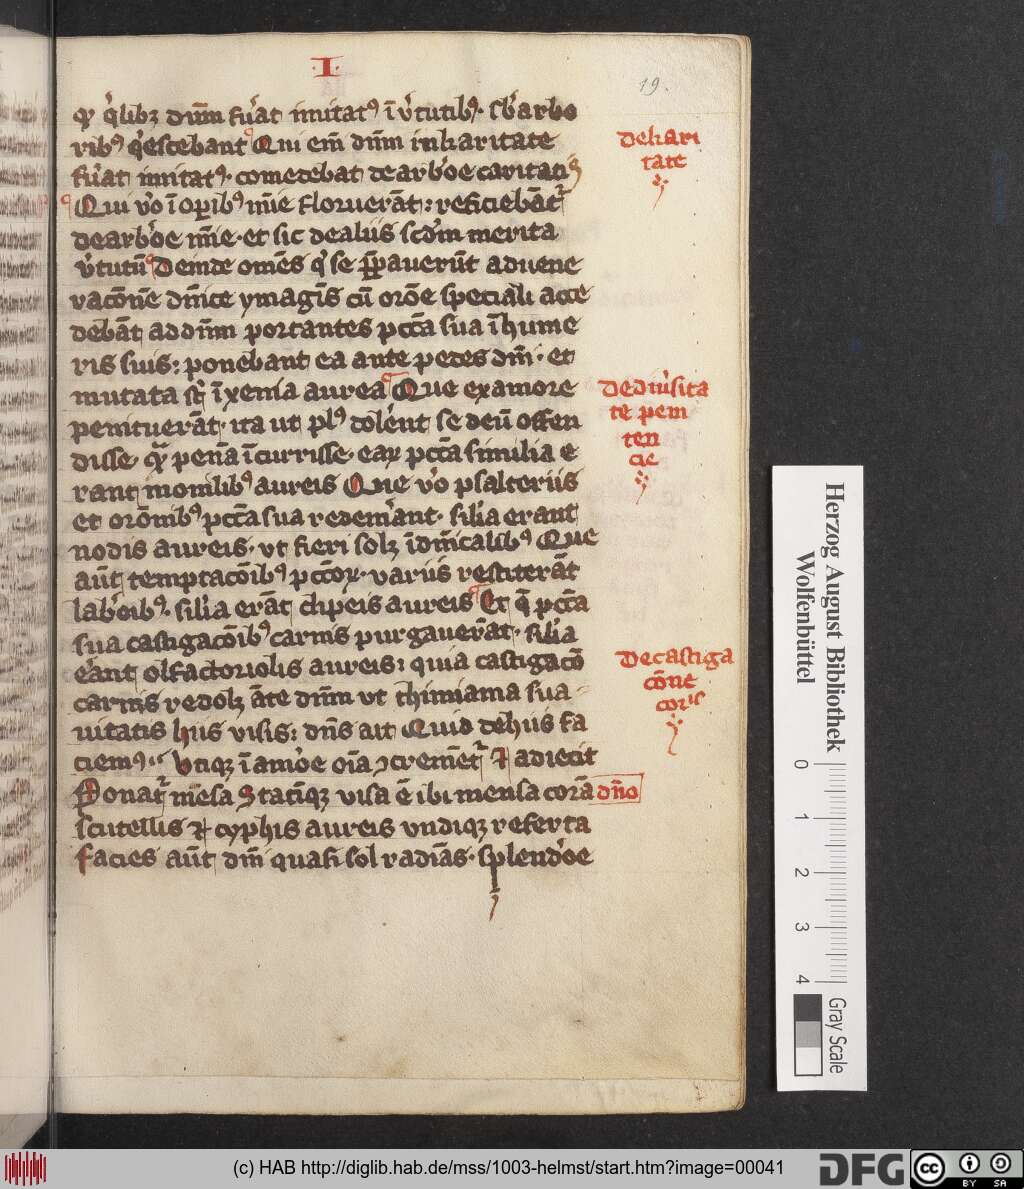 ·I·
19.
qͥ qͥlibꝫ dn̄m fu̾at imitatꝰ ī v̾tutibꝰ· sb̾ arbo
ribꝰ qͥescebant Qui em̄ dn̄m in karitate
fu̾at imitatꝰ· comedebat de arbo̾e caritatis
Qui v̾o ī oꝑibꝰ mīe floruerāt: reficiebāt᷑
de arbo̾e mīe· et sic de aliis scd̾m merita
v̾tutū Deinde om̄es qͥ se p̄ꝑauerūt aduene
racōne dn̄ice ymagīs cū or̄one speciali acce
debāt ad dn̄m portantes pctā sua ī hume
ris suis: ponebant ea ante pedes dn̄i· et
mutata st̄ ī xenia aurea Que ex amore
penituerāt· ita ut plꝰ dole̾nt se deū offen
disse· qͣꝫ penā īcurrisse· eaꝝ pctā similia e
rant monilibꝰ aureis Que v̾o psalteriis
et orōnibꝰ pctā sua redeme̾ant· sili̾a erant
nodis aureis· vt fieri solꝫ ī dn̄icalibꝰ Que
aūt temptacōibꝰ pctōꝝ· variis restiterāt
labo̾ibꝰ· sili̾a erāt clipeis aureis Et q̄ pctā
sua castigacōibꝰ carnis purgauerāt· sili̾a
e̾ant olfactoriolis aureis: quia castigacō
carnis redolꝫ āte dn̄m vt thimiama sua
uitatis hiis visis: dn̄s ait Quid de hiis fa
ciemꝰ Vtiqꝫ ī amo̾e oīa ↄcremēt᷑ Et adiecit
Ponat᷑ mēsa Statīqꝫ visa ē ibi mensa corā dn̄o
scutellis ⁊ cyphis aureis vndiqꝫ referta
facies aūt dn̄i quasi sol radiās· splendo̾e
de kari
tate
de diu̾sita
te peni
ten
cie
de castiga
cōne
cor̾is
Herzog August Bibliothek
Wolfenbüttel
0 1 2 3 4
Gray Scale
(c) HAB http://diglib.hab.de/mss/1003-helmst/start.htm?image=00041
DFG
cc BY SA